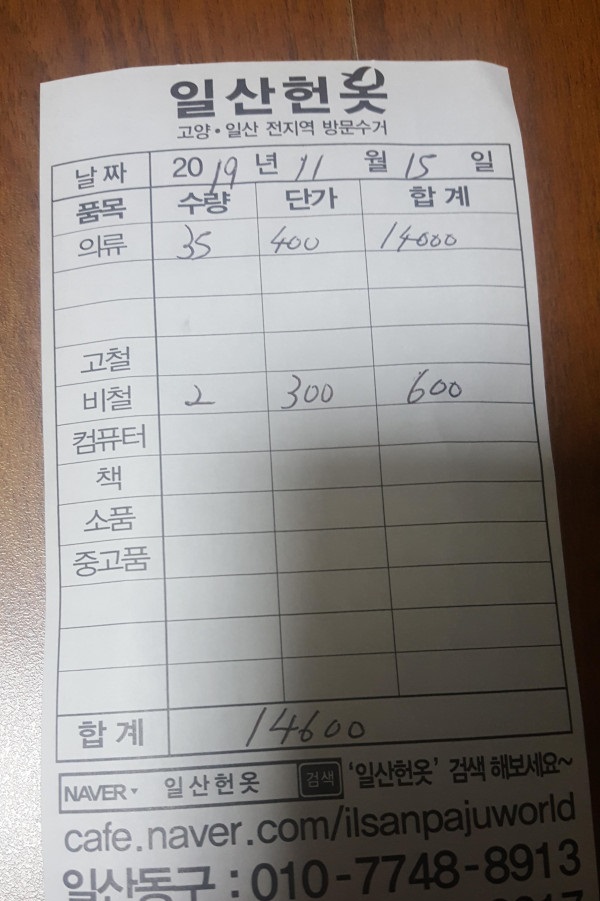 일산헌옷
고양·일산 전지역 방문수거
날짜 2019년 11월 15일
품목 수량 단가 합계
의류 35 400 14000
고철
비철 2 300 600
컴퓨터
책
소품
중고품
합계 14600
NAVER 일산헌옷 검색 '일산헌옷' 검색 해보세요~
cafe.naver.com/ilsanpajuworld
일산동구 : 010-7748-8913